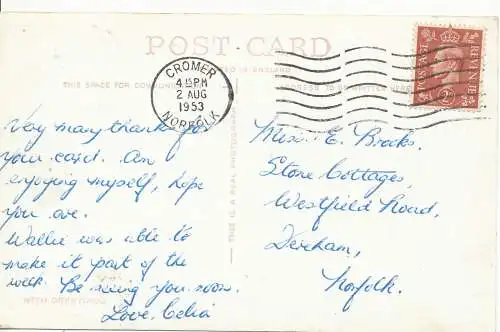 POST CARD
CROMER
4.15PM
2 AUG
1953
NORFOLK
POSTAGE
REVENUE
THIS SPACE FOR COMMUN
ADDRESS TO BE WRITTEN HERE
THIS IS A REAL PHOTOGRAPH
Very many thanks for
your card. Am
enjoying myself, hope
you are.
Wallie was able to
make it part of the
week. Be seeing you soon.
Love. Celia
WITH GREETINGS
Miss. E. Brooks.
Stone Cottages,
Westfield Road,
Dereham,
Norfolk.